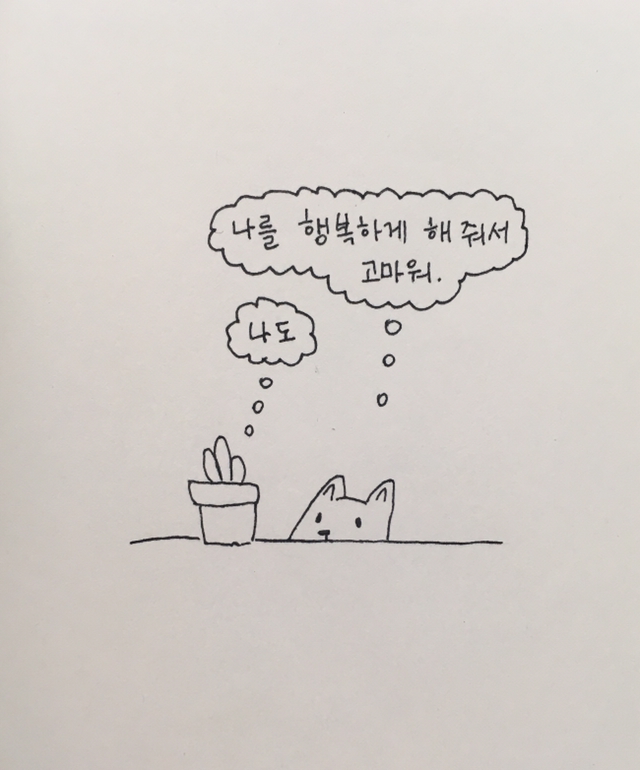 나를 행복하게 해 줘서
고마워.
나도